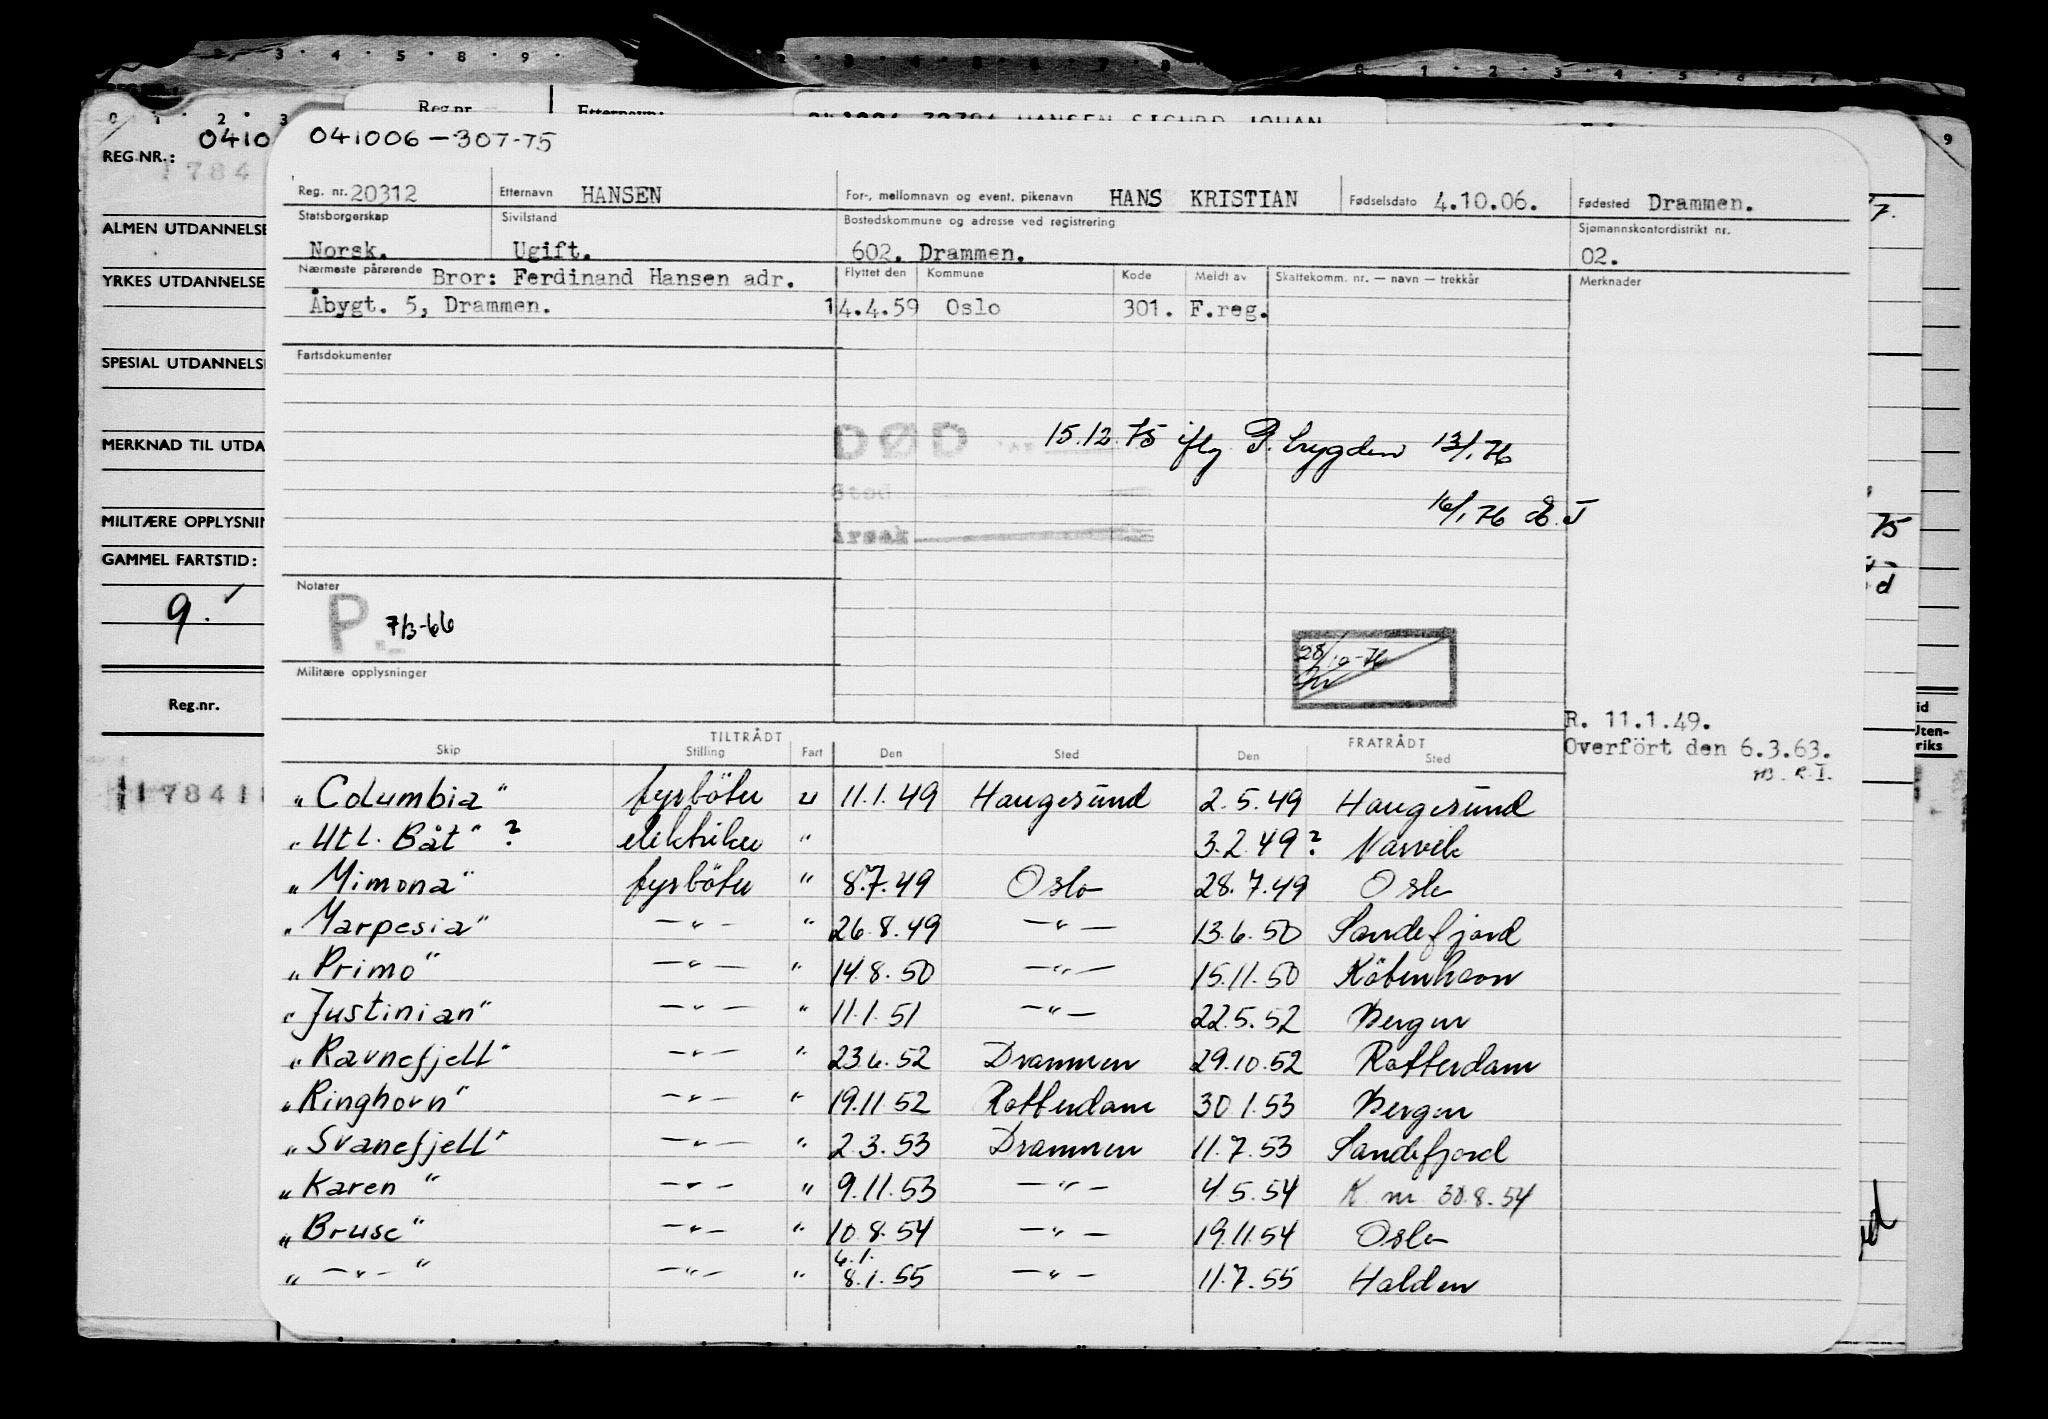 2 3 4 5 8 9
2 3 4 5 6 7 8
0 1 2 3 4 5 6 7 8
Reg.nr. Etternavn:
041006 30786 HANSEN SIGURD JOHAN
0 1 2 3
9
REG.NR.: 0410
1784
ALMEN UTDANNELSE
YRKES UTDANNELSE
SPESIAL UTDANNELSE
MERKNAD TIL UTDA
MILITÆRE OPPLYSNIN
GAMMEL FARTSTID:
9.
Reg.nr.
178411
041006-307-75
Reg. nr. 20312 Etternavn HANSEN For-, mellomnavn og event. pikenavn HANS KRISTIAN Fødselsdato 4.10.06. Fødested Drammen.
Statsborgerskap Sivilstand Bostedskommune og adresse ved registrering Sjømannskontordistrikt nr.
Norsk. Ugift. 602. Drammen. 02.
Nærmeste pårørende Bror: Ferdinand Hansen adr. Flyttet den Kommune Kode Meldt av Skattekomm. nr. — navn — trekkår Merknader
Åbygt. 5, Drammen. 14.4.59 Oslo 301. F.reg.
Fartsdokumenter
DØD 15.12.75 iflg P. trygden 13/1 76
Sted
16/1 76
Årsak
Notater
P. 7/3-66
28/10-76
Militære opplysninger
R. 11.1.49.
Overført den 6.3.63.
TILTRÅDT FRATRÅDT
Skip Stilling Fart Den Sted Den Sted
"Columbia" fyrböter u 11.1.49 Haugesund 2.5.49 Haugesund
"Utl. Båt" ? elektriker " 3.2.49? Narvik
"Mimona" fyrböter " 8.7.49 Oslo 28.7.49 Oslo
"Marpesia" —"— " 26.8.49 —"— 13.6.50 Sandefjord
"Primo" —"— " 14.8.50 —"— 15.11.50 Köbenhavn
"Justinian" —"— " 11.1.51 —"— 22.5.52 Bergen
"Ravnefjell" —"— " 23.6.52 Drammen 29.10.52 Rotterdam
"Ringhorn" —"— " 19.11.52 Rotterdam 30.1.53 Bergen
"Svanefjell" —"— " 2.3.53 Drammen 11.7.53 Sandefjord
"Karen" —"— " 9.11.53 —"— 4.5.54 K. m. 30.8.54
"Bruse" —"— " 10.8.54 —"— 19.11.54 Oslo
6.1.
" —"— " —"— " 8.1.55 —"— 11.7.55 Halden